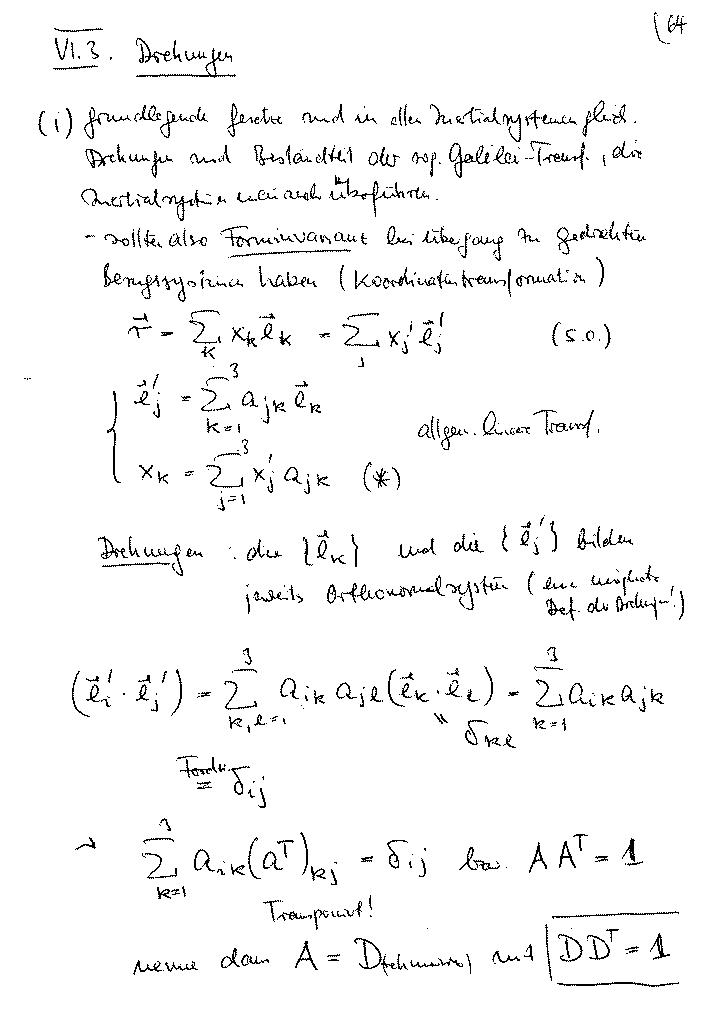 (64
VI.3. Drehungen
(1) Grundlegende Gesetze sind in allen Inertialsystemen gleich.
Drehungen sind Bestandteil der sog. Galilei-Transf., die
Inertialsysteme ineinander überführen.
- sollten also Forminvarianz bei Übergang zu gedrehten
Bezugssystemen haben (Koordinatentransformation)
\vec{r} = \sum_k x_k \vec{e}_k = \sum_j x_j' \vec{e}_j' (s.o.)
\vec{e}_j' = \sum_{k=1}^3 a_{jk} \vec{e}_k
allgem. lineare Transf.
x_k = \sum_{j=1}^3 x_j' a_{jk} (*)
Drehungen : die {\vec{e}_k} und die {\vec{e}_j'} bilden
jeweils Orthonormalsystem (eine mögliche
Def. der Drehungen!)
(\vec{e}_i' \cdot \vec{e}_j') = \sum_{k,l=1}^3 a_{ik} a_{jl} (\vec{e}_k \cdot \vec{e}_l) = \sum_{k=1}^3 a_{ik} a_{jk}
" δ_{kl}
= δ_{ij}
→ \sum_{k=1}^3 a_{ik} (a^T)_{kj} = δ_{ij} bzw. A A^T = 1
Transponiert!
nenne dann A = D(rehmatrix) mit DD^T = 1